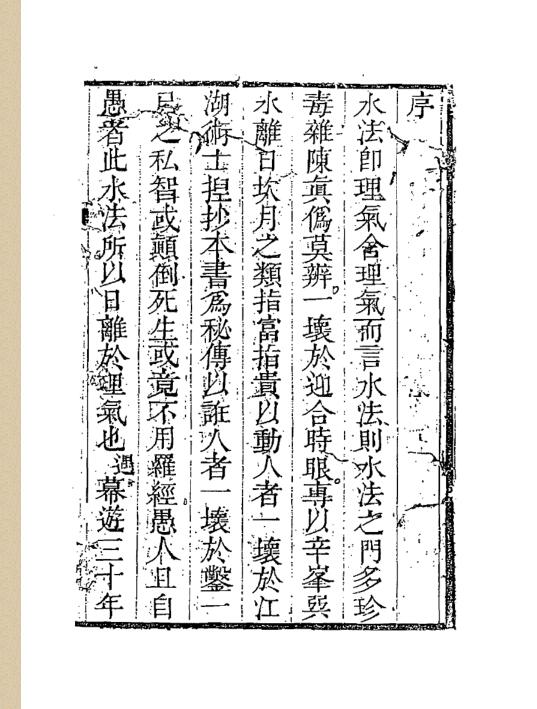 序
水法卽理氣舍理氣而言水法則水法之門多珍
毒雜陳眞僞莫辨一壞於迎合時眼專以辛峯巽
水離日坎月之類指富指貴以動人者一壞於江
湖術士揑抄本書爲秘傳以誑人者一壞於鑿一
己之私智或顚倒死生或竟不用羅經愚人且自
愚者此水法所以日離於理氣也遇幕遊三十年